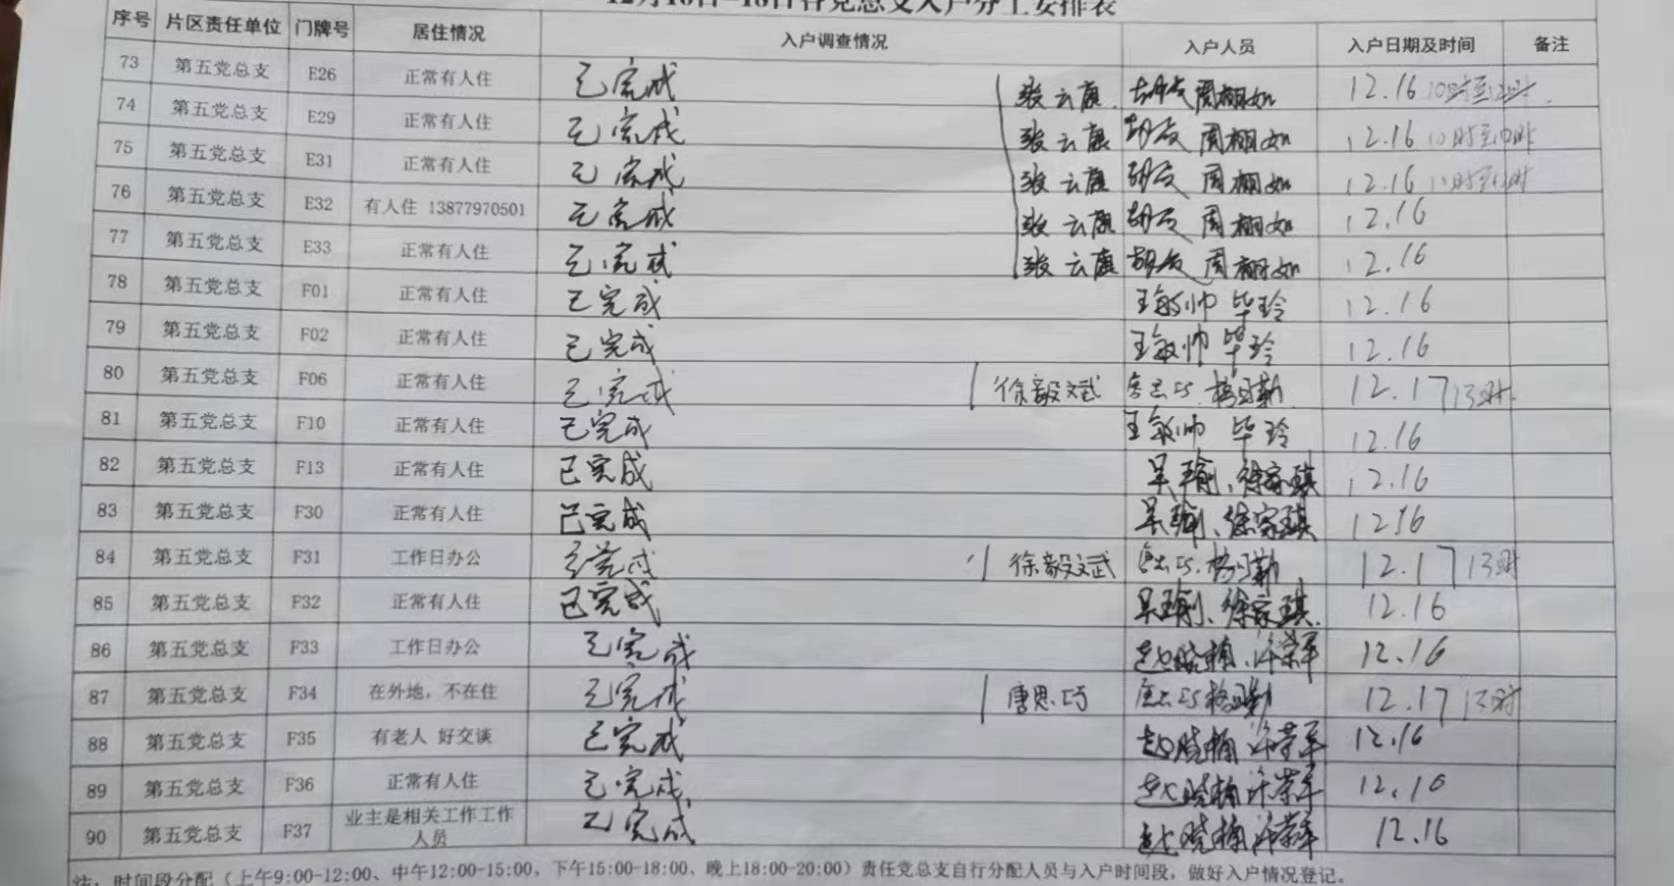 12月16日-18日各党总支入户分工安排表
序号 片区责任单位 门牌号 居住情况 入户调查情况 入户人员 入户日期及时间 备注
73 第五党总支 E26 正常有人住 已完成 张云 周 如 12.16
74 第五党总支 E29 正常有人住 已完成 张云 周 如 12.16
75 第五党总支 E31 正常有人住 已完成 张云 周 如 12.16
76 第五党总支 E32 有人住 13877970501 已完成 张云 周 如 12.16
77 第五党总支 E33 正常有人住 已完成 张云 周 如 12.16
78 第五党总支 F01 正常有人住 已完成 王敏帅 毕玲 12.16
79 第五党总支 F02 正常有人住 已完成 王敏帅 毕玲 12.16
80 第五党总支 F06 正常有人住 已完成 徐毅斌 12.17 13时
81 第五党总支 F10 正常有人住 已完成 王敏帅 毕玲 12.16
82 第五党总支 F13 正常有人住 已完成 徐家琪 12.16
83 第五党总支 F30 正常有人住 已完成 徐家琪 12.16
84 第五党总支 F31 工作日办公 已完成 徐毅斌 12.17 13时
85 第五党总支 F32 正常有人住 已完成 徐家琪 12.16
86 第五党总支 F33 工作日办公 已完成 赵晓楠、许荣军 12.16
87 第五党总支 F34 在外地，不在住 已完成 唐思巧 12.17 13时
88 第五党总支 F35 有老人 好交谈 已完成 赵晓楠 许荣军 12.16
89 第五党总支 F36 正常有人住 已完成 赵晓楠 许荣军 12.16
90 第五党总支 F37 业主是相关工作工作人员 已完成 赵晓楠 许荣军 12.16
注：时间段分配（上午9:00-12:00、中午12:00-15:00，下午15:00-18:00、晚上18:00-20:00）责任党总支自行分配人员与入户时间段，做好入户情况登记。